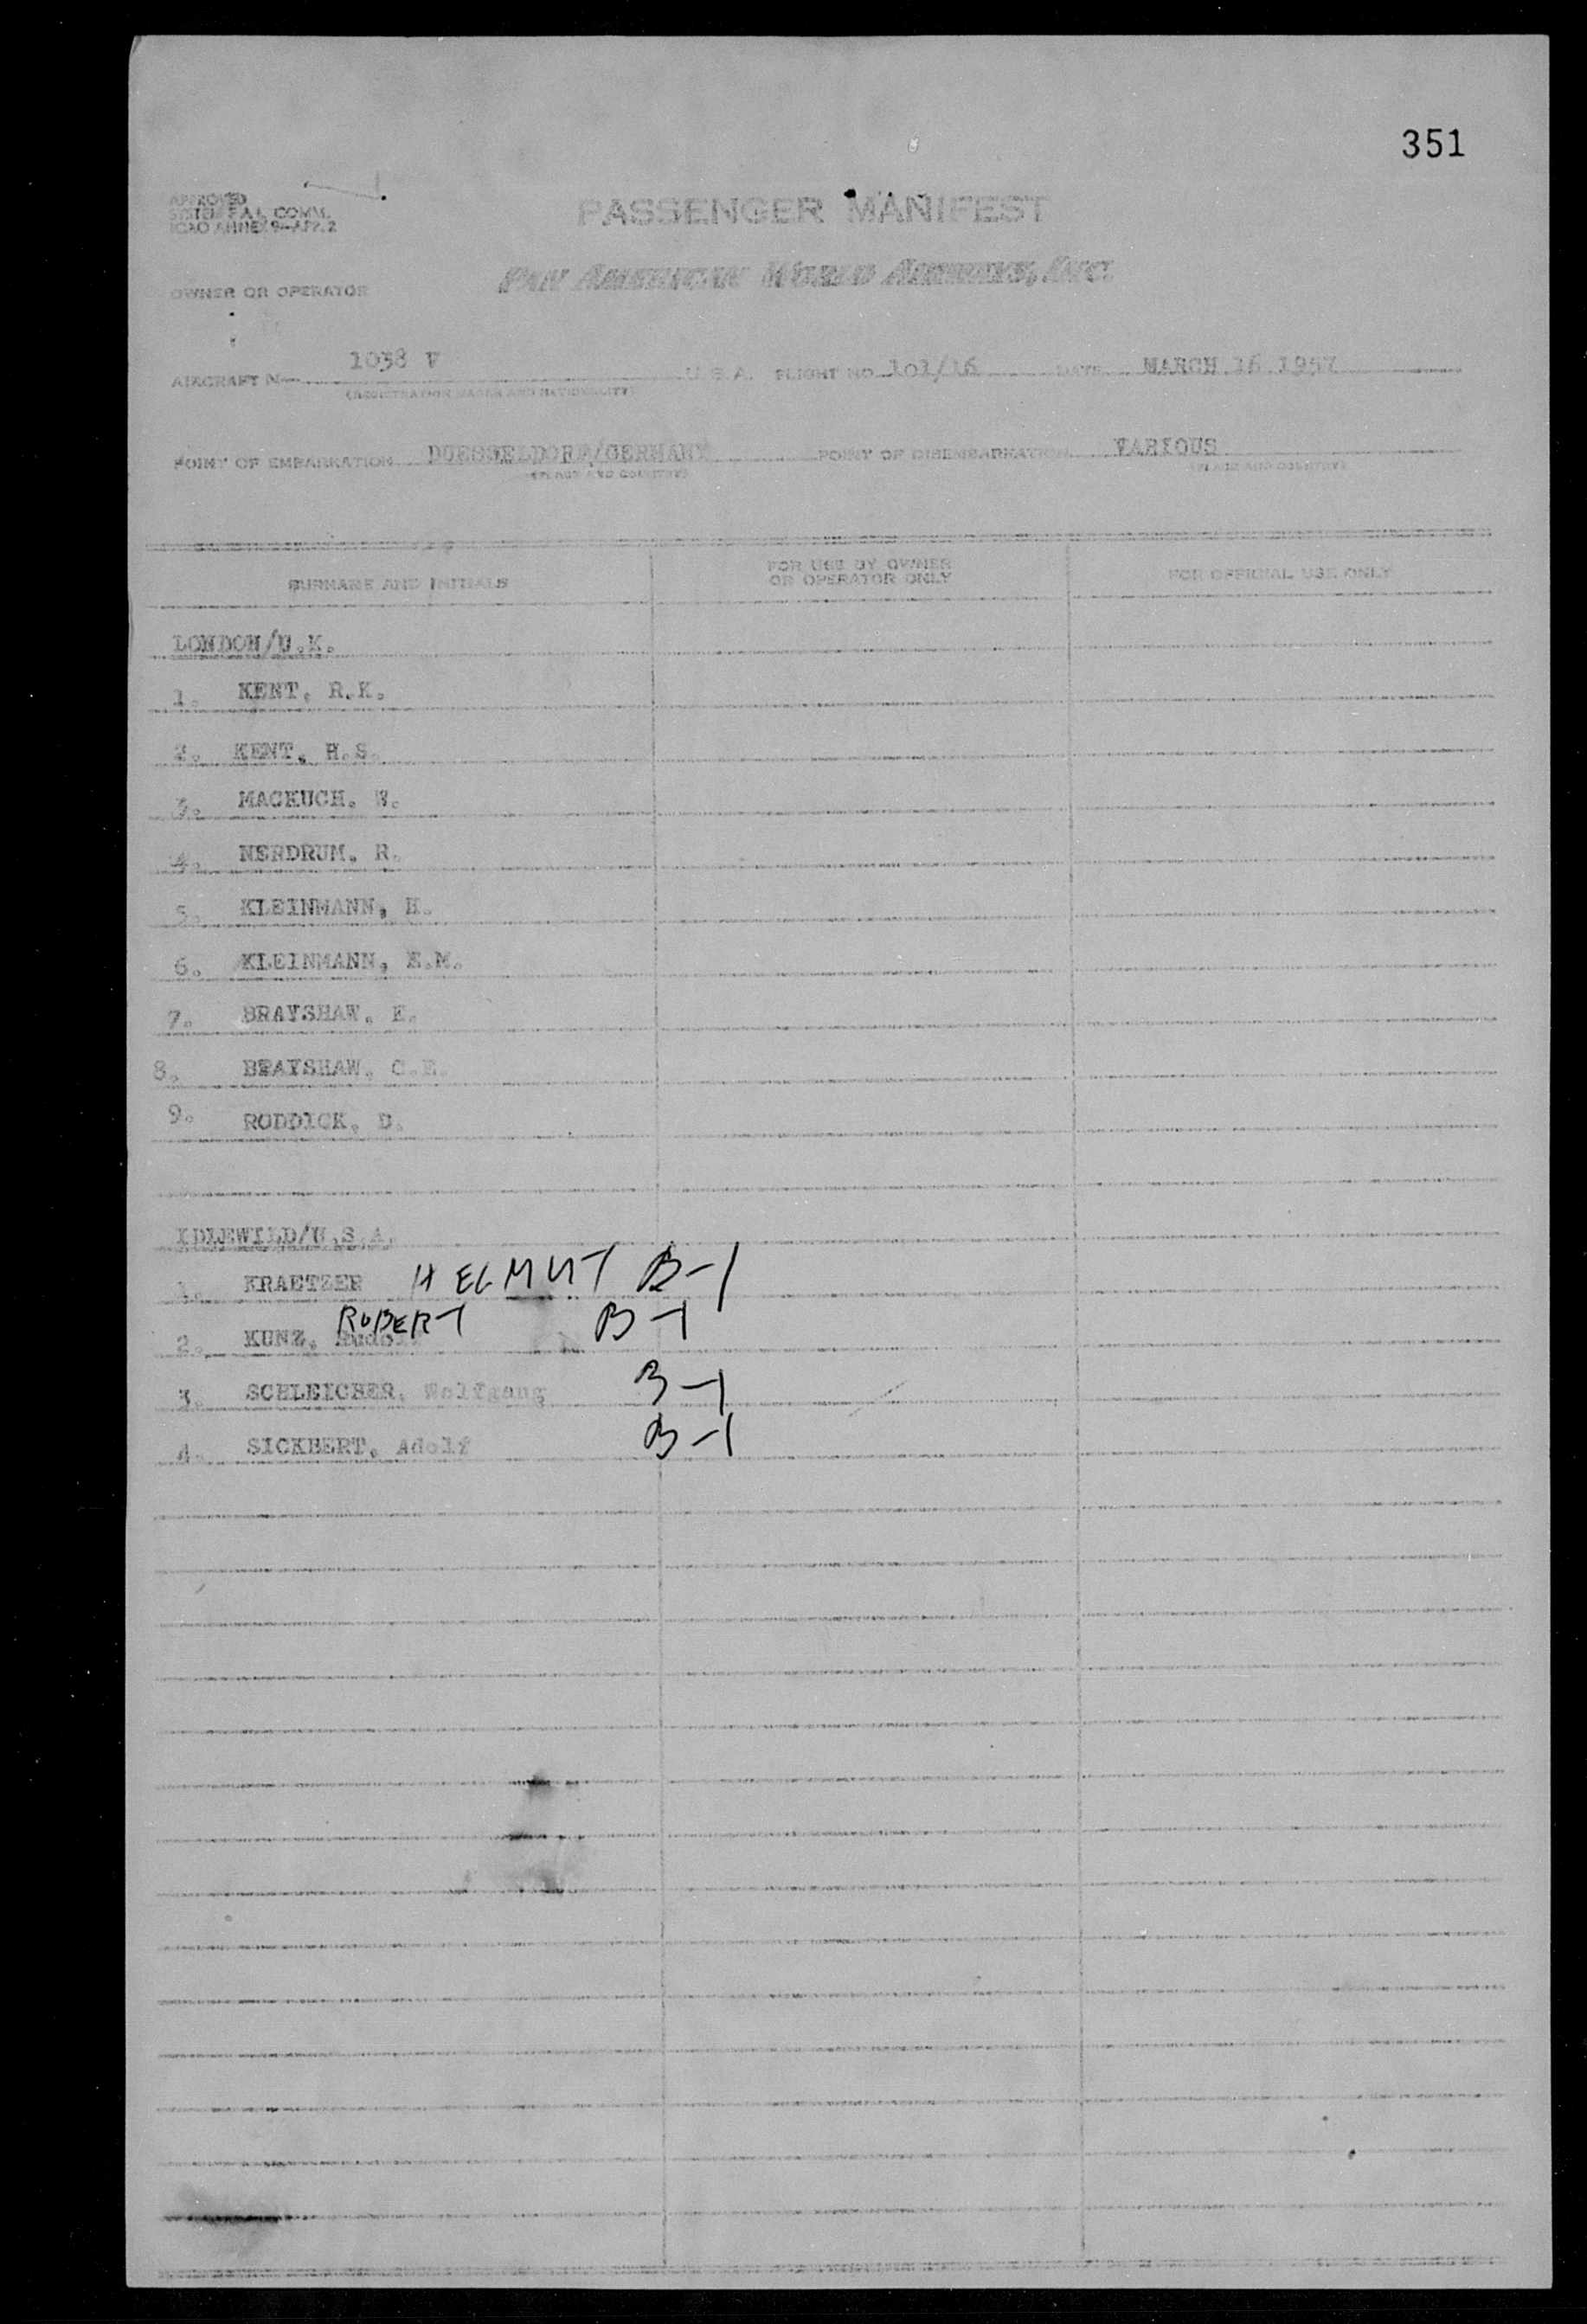 351
APPROVED
SYSTEM F.A.L. COMM.
ICAO ANNEX 9-APP. 2
PASSENGER MANIFEST
OWNER OR OPERATOR
PAN AMERICAN WORLD AIRWAYS, INC.
AIRCRAFT N- 1038 V U.S.A. FLIGHT NO 101/16 DATE MARCH 16 1957
(REGISTRATION MARKS AND NATIONALITY)
POINT OF EMBARKATION DUESSELDORF/GERMANY POINT OF DISEMBARKATION VARIOUS
(PLACE AND COUNTRY) (PLACE AND COUNTRY)
SURNAME AND INITIALS FOR USE BY OWNER OR OPERATOR ONLY FOR OFFICIAL USE ONLY
LONDON/U.K.
1. KENT, R.K.
2. KENT, H.S.
3. MACKUCH. W.
4. NERDRUM. R.
5. KLEINMANN, H.
6. KLEINMANN, E.M.
7. BRAYSHAW. E.
8. BRAYSHAW, C.E.
9. RODDICK, D.
IDLEWILD/U.S.A.
1. KRAETZER HELMUT B-1
ROBERT B-1
2. KUNZ,
3. SCHLEICHER, Wolfgang B-1
4. SICKBERT, Adolf B-1